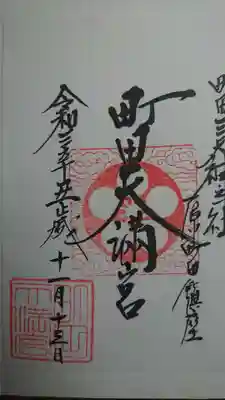 町田三天神之社
原町田鎮座
町田天満宮
令和三辛丑歳
十一月十三日